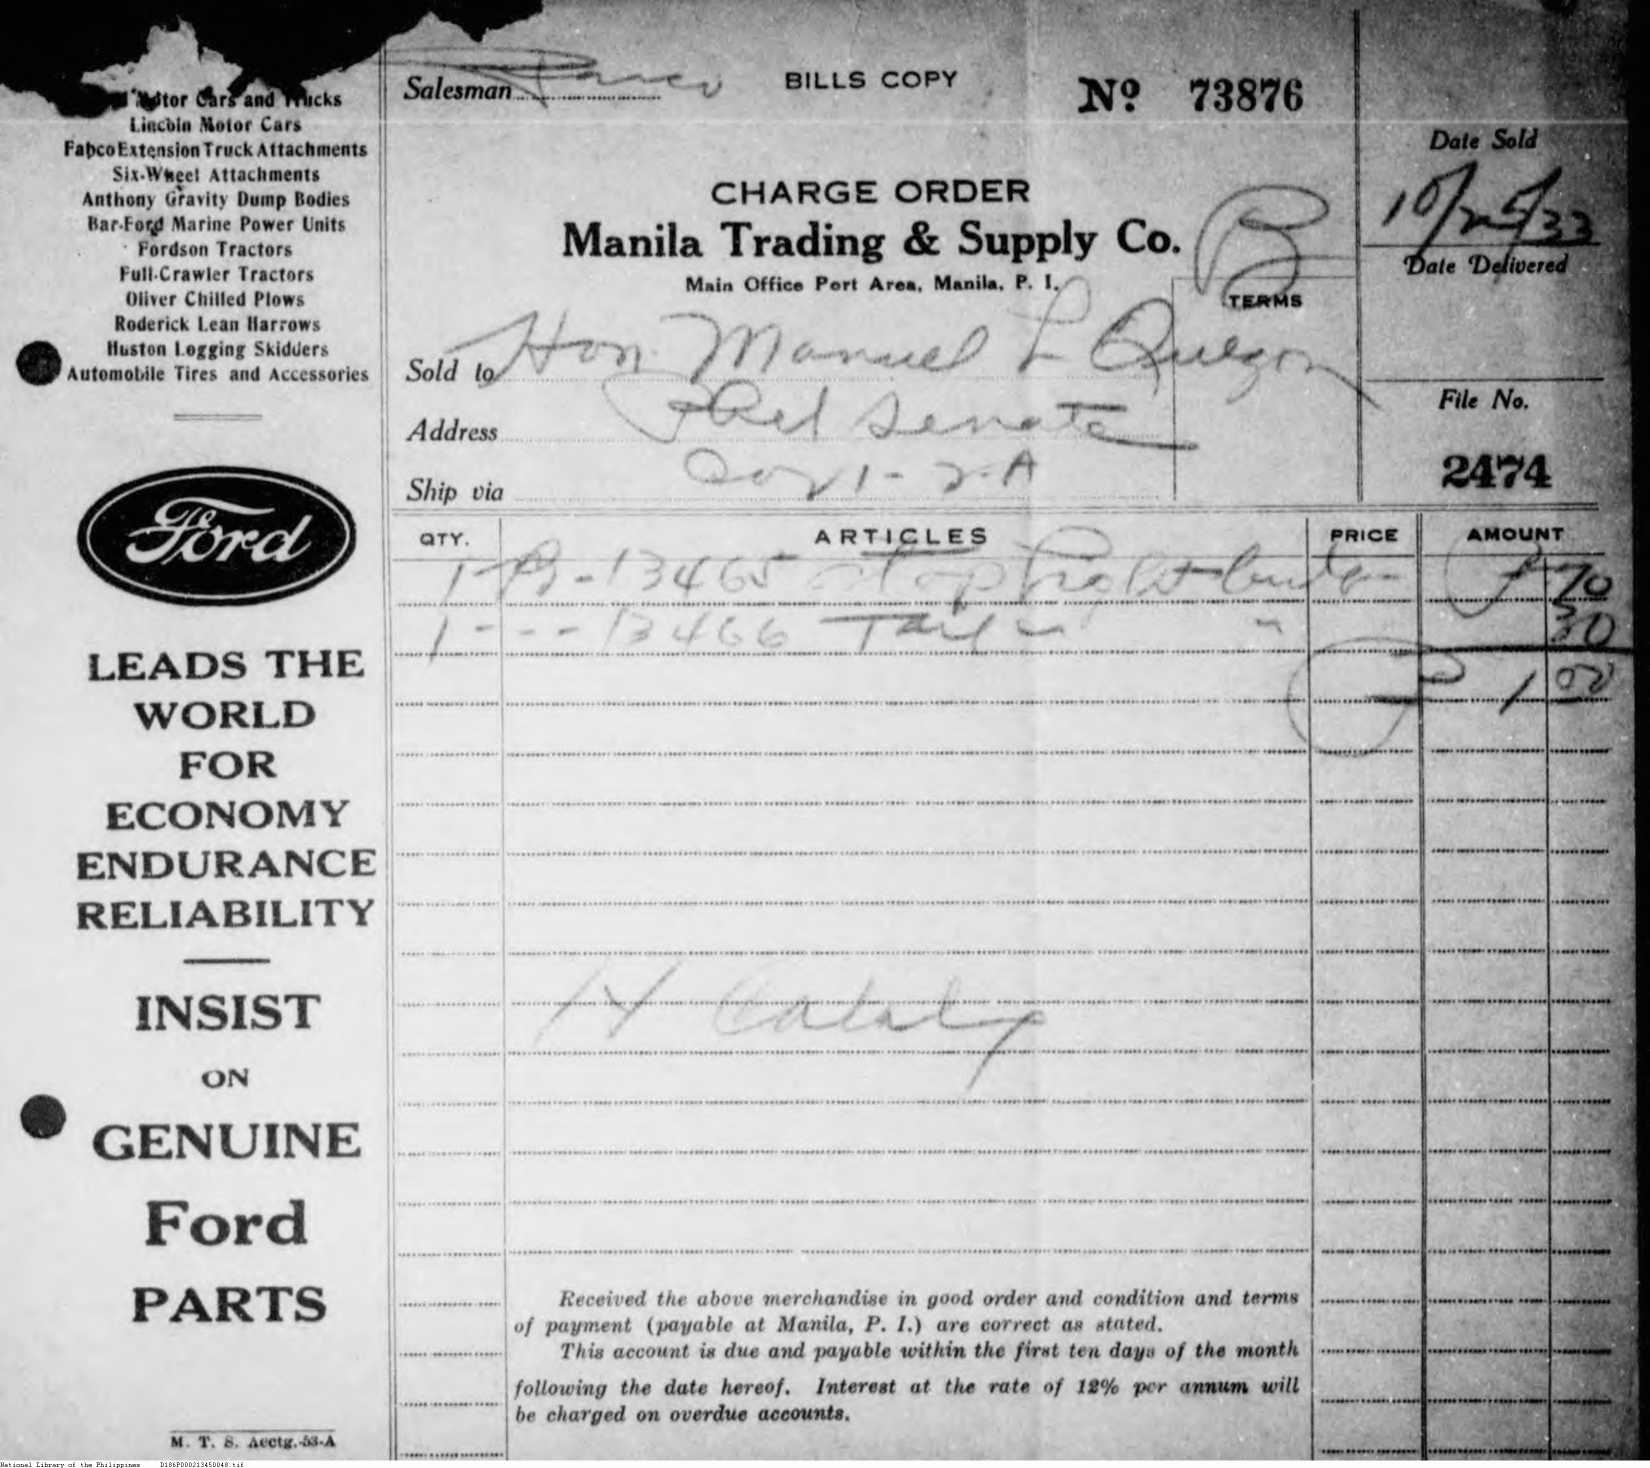 Motor Cars and Trucks
Lincoln Motor Cars
Fabco Extension Truck Attachments
Six-Wheel Attachments
Anthony Gravity Dump Bodies
Bar-Ford Marine Power Units
Fordson Tractors
Full-Crawler Tractors
Oliver Chilled Plows
Roderick Lean Harrows
Huston Logging Skidders
Automobile Tires and Accessories
Ford
LEADS THE
WORLD
FOR
ECONOMY
ENDURANCE
RELIABILITY
INSIST
ON
GENUINE
Ford
PARTS
M. T. S. Acctg.-53-A
Salesman
BILLS COPY
No 73876
CHARGE ORDER
Manila Trading & Supply Co.
Main Office Port Area, Manila, P. I.
B
TERMS
Date Sold
10/25/33
Date Delivered
File No.
2474
Sold to Hon. Manuel L Quezon
Address Phil Senate
Ship via 1-2-A
QTY. ARTICLES PRICE AMOUNT
1 - B-13465 Stop light 70
1 - - - 13466 Tail " " 30
P 1 00
Received the above merchandise in good order and condition and terms
of payment (payable at Manila, P. I.) are correct as stated.
This account is due and payable within the first ten days of the month
following the date hereof. Interest at the rate of 12% per annum will
be charged on overdue accounts.
National Library of the Philippines D186P000213450048.tif